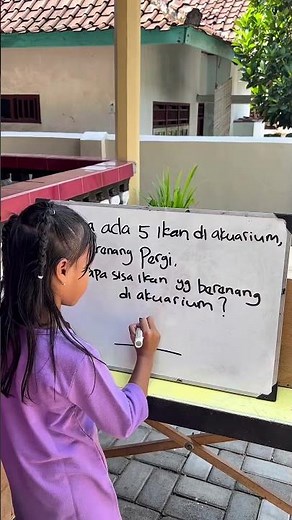 ada 5 Ikan di akuarium,
renang Pergi.
apa sisa ikan yg berenang
di akuarium?